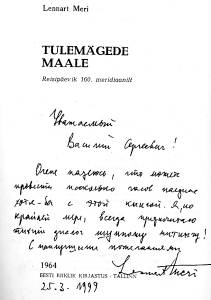 Lennart Meri
TULEMÄGEDE
MAALE
Reisipäevik 160. meridiaanilt
Уважаемый
Василий Сергеевич!
Очень надеюсь, что может
провести несколько часов наедине
хотя-бы с этой книгой. Я, по
крайней мере, всегда предпочитаю
тихий диалог шумному митингу!
С наилучшими пожеланиями
1964
Lennart Meri
EESTI RIIKLIK KIRJASTUS · TALLINN
25.3.1999